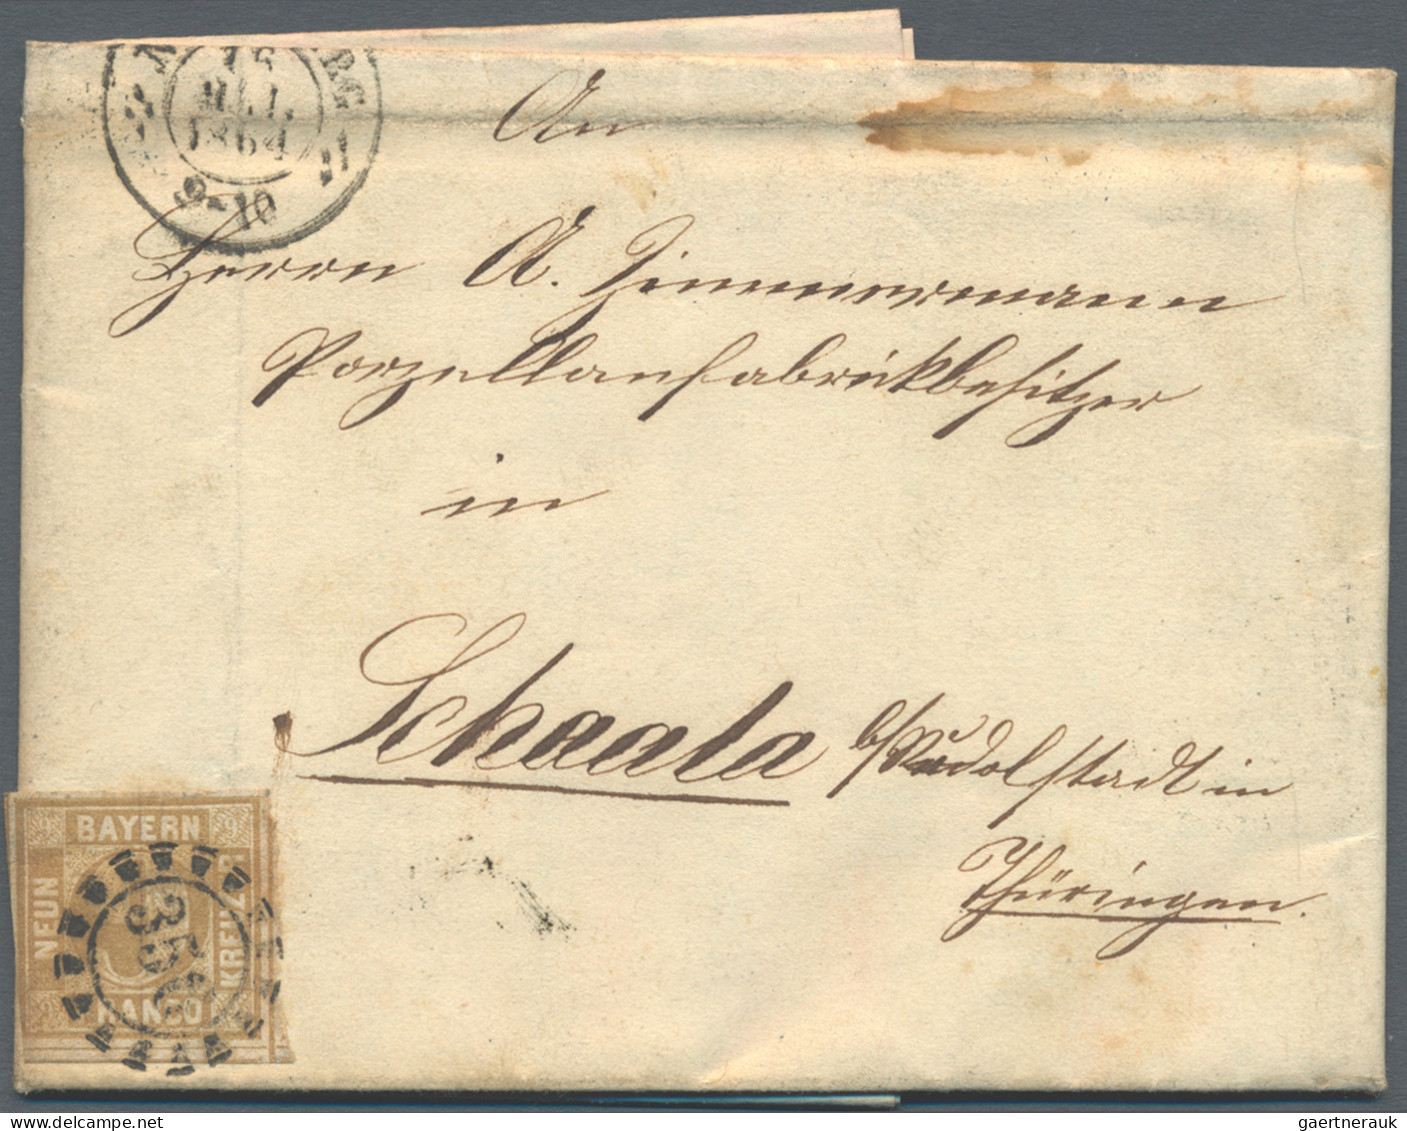 15
MAI.
1864
9-10
An
Herrn A. Zimmermann
Porzellanfabrikbesitzer
in
Schaala b/Rudolstadt in
Thüringen.
BAYERN
9 9
NEUN
KREUZE
FRANCO
356
gaertnerauk